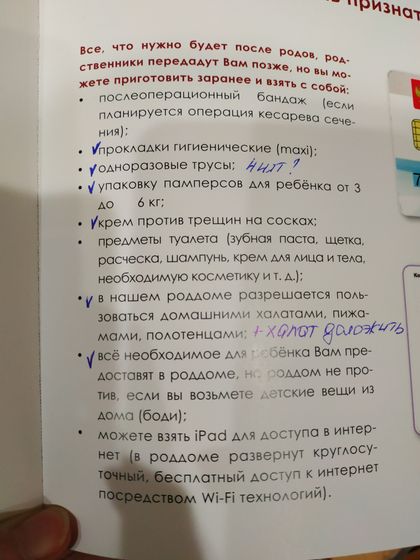 ь признат
Все, что нужно будет после родов, род-
ственники передадут Вам позже, но вы мо-
жете приготовить заранее и взять с собой:
• послеоперационный бандаж (если
планируется операция кесарева сече-
ния);
• прокладки гигиенические (maxi);
• одноразовые трусы; 4 шт?
• упаковку памперсов для ребёнка от 3
до 6 кг;
• крем против трещин на сосках;
• предметы туалета (зубная паста, щетка,
расческа, шампунь, крем для лица и тела,
необходимую косметику и т. д.);
• в нашем роддоме разрешается поль-
зоваться домашними халатами, пижа-
мами, полотенцами; +халат доложить
• всё необходимое для ребёнка Вам пре-
доставят в роддоме, но роддом не про-
тив, если вы возьмете детские вещи из
дома (боди);
• можете взять iPad для доступа в интер-
нет (в роддоме развернут круглосу-
точный, бесплатный доступ к интернет
посредством Wi-Fi технологий).
7